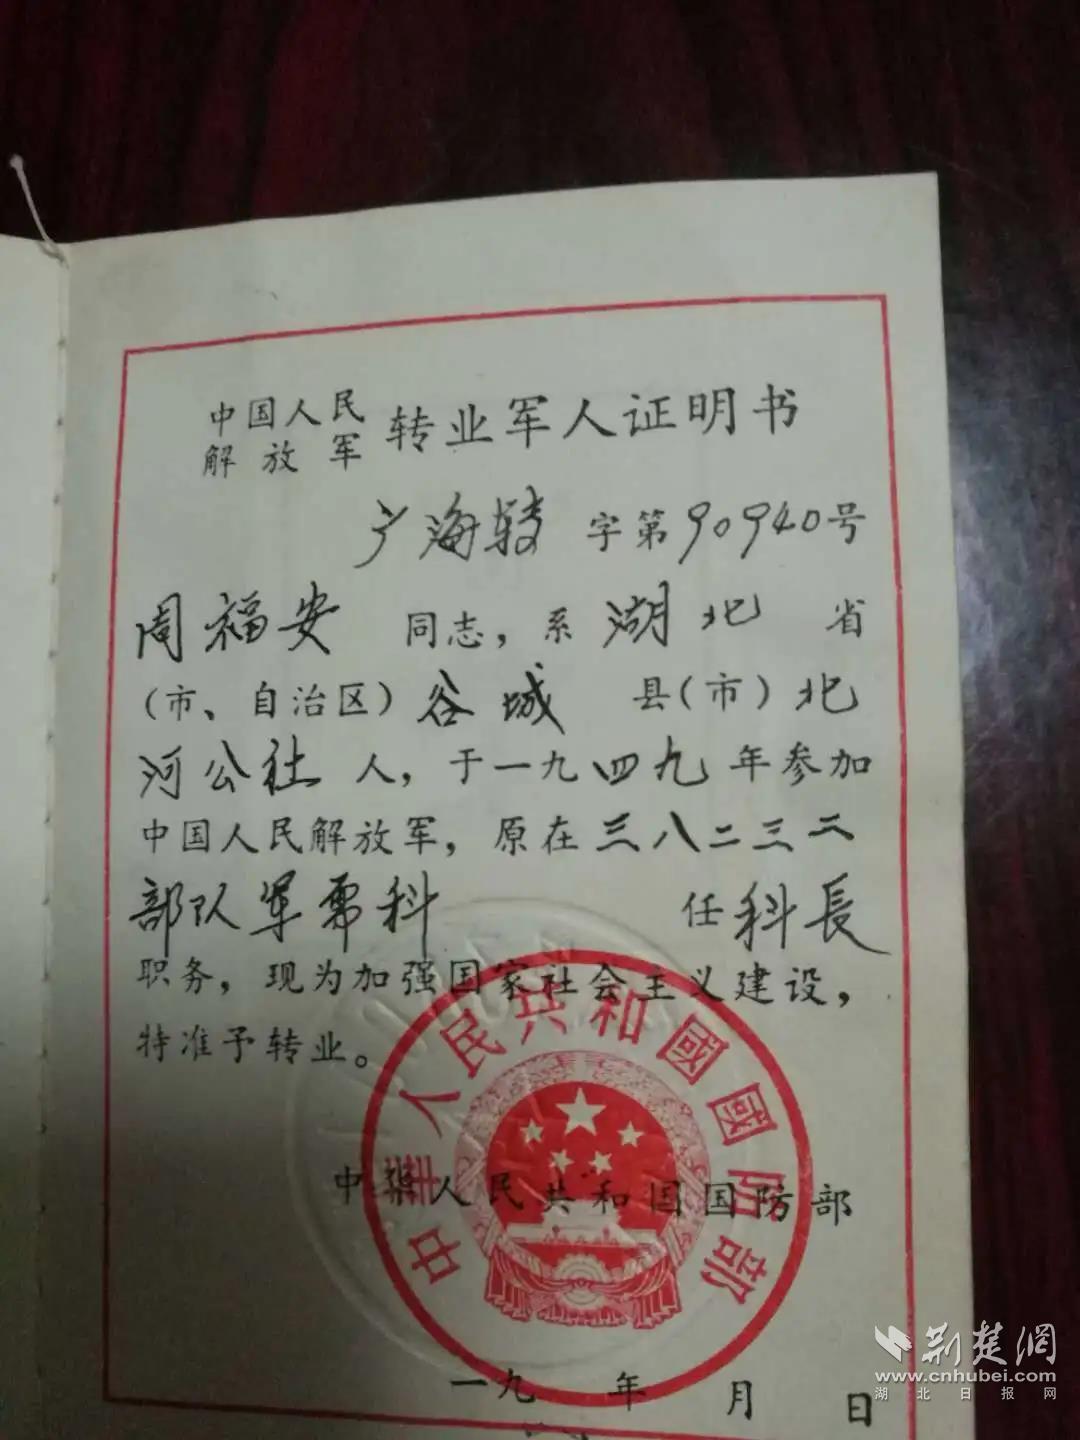 中国人民
解放军 转业军人证明书
广海转 字第90940号
周福安 同志，系 湖北 省
（市、自治区）谷城 县（市）北
河公社 人，于一九四九年参加
中国人民解放军，原在三八二三二
部队军需科 任科長
职务，现为加强国家社会主义建设，
特准予转业。
中华人民共和国国防部
中華人民共和國國防部
一九 年 月 日
荆楚網
www.cnhubei.com
湖北日报网